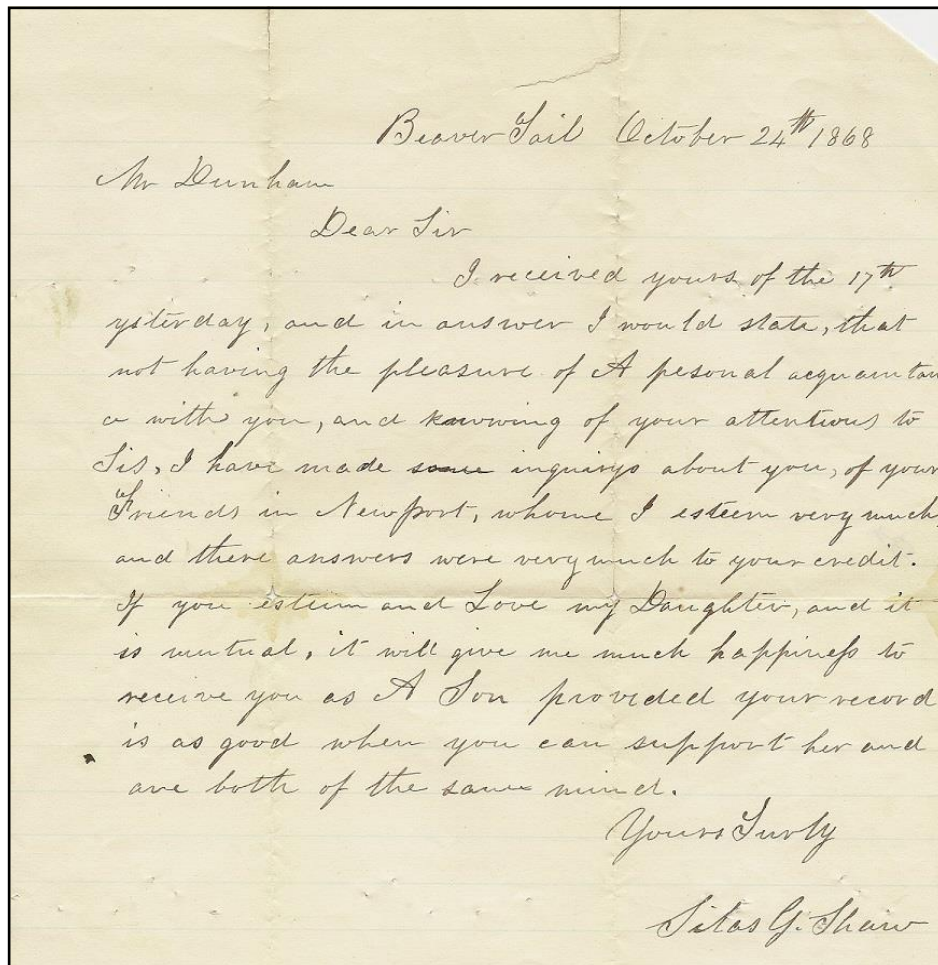 Beaver Tail October 24th 1868
Mr Dunham
Dear Sir
I received yours of the 17th
ysterday, and in answer I would state, that
not having the pleasure of A pesonal acquaintan
ce with you, and knowing of your attentions to
Sis, I have made some inquirys about you, of your
Friends in Newport, whome I esteem very much
and there answers were very much to your credit.
If you esteem and Love my Daughter, and it
is mutual, it will give me much happiness to
receive you as A Son provided your record
is as good when you can support her and
are both of the same mind.
Yours Turly
Silas G. Shaw